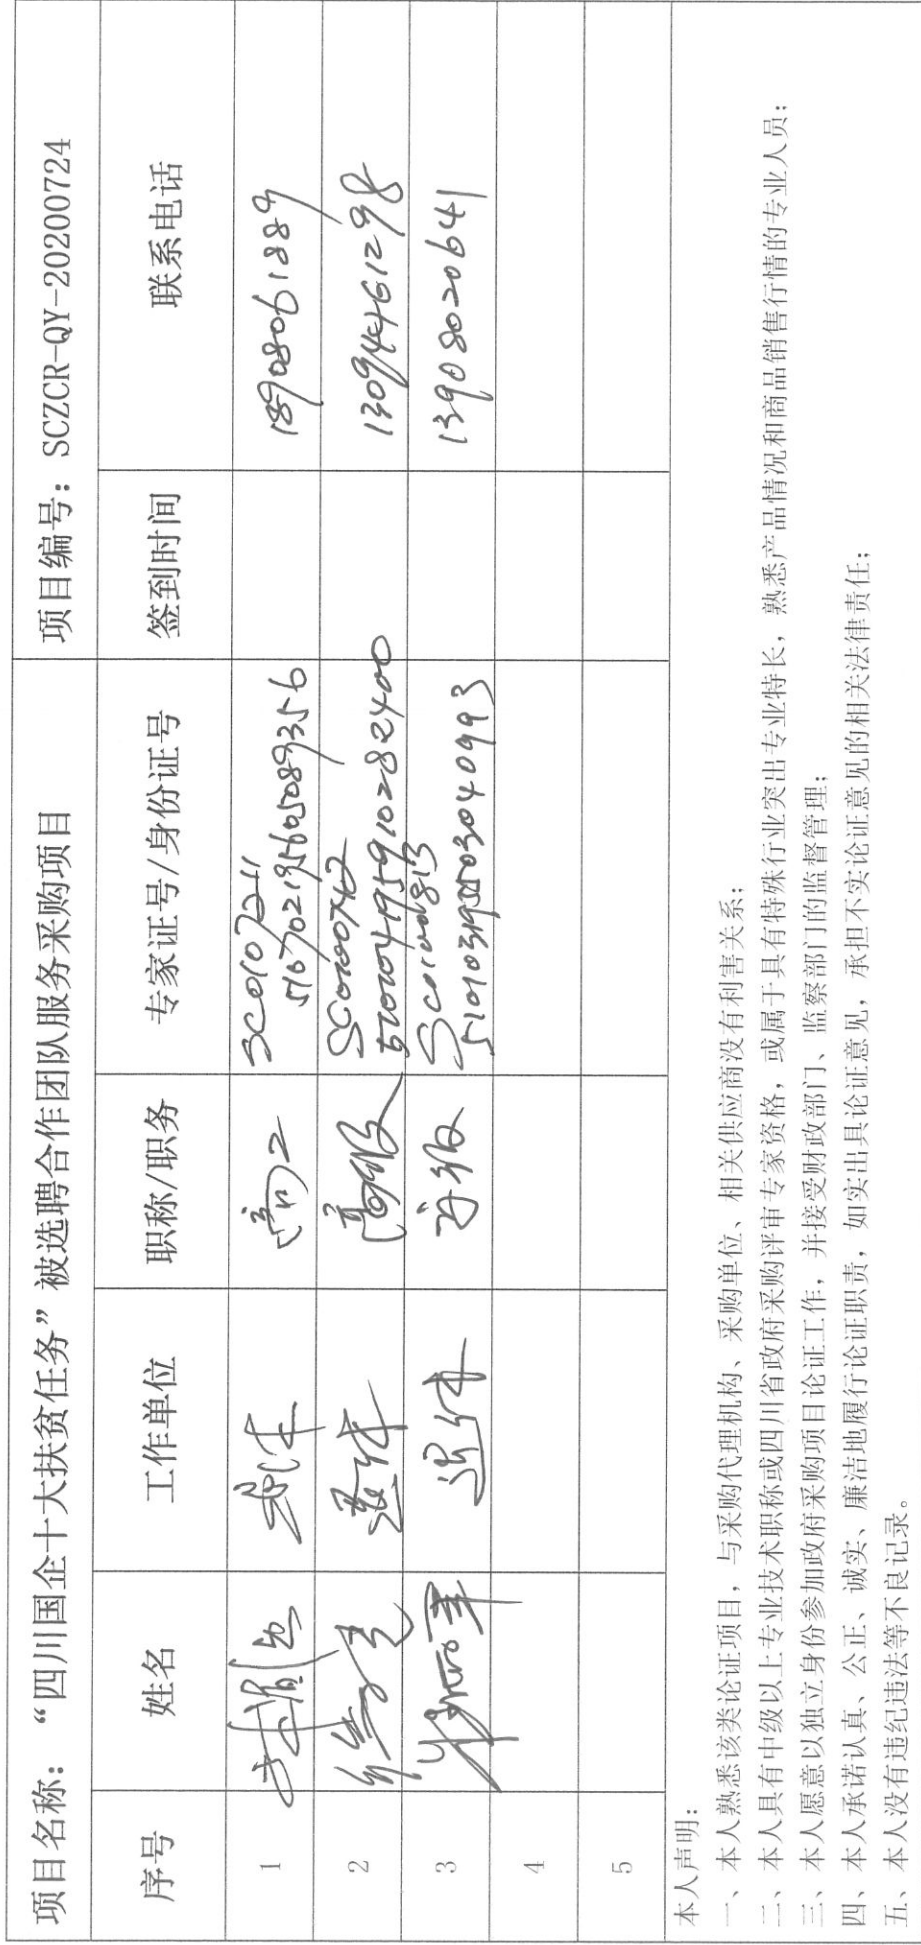 项目名称：“四川国企十大扶贫任务”被选聘合作团队服务采购项目 项目编号：SCZCR-QY-20200724
序号 姓名 工作单位 职称/职务 专家证号/身份证号 签到时间 联系电话
1 高工 18908061889
2 退休 高级 13094461298
3 退休 高级 510103195503040993 13908020641
4
5
本人声明：
一、本人熟悉该类论证项目，与采购代理机构、采购单位、相关供应商没有利害关系；
二、本人具有中级以上专业技术职称或四川省政府采购评审专家资格，或属于具有特殊行业突出专业特长，熟悉产品情况和商品销售行情的专业人员；
三、本人愿意以独立身份参加政府采购项目论证工作，并接受财政部门、监察部门的监督管理；
四、本人承诺认真、公正、诚实、廉洁地履行论证职责，如实出具论证意见，承担不实论证意见的相关法律责任；
五、本人没有违纪违法等不良记录。